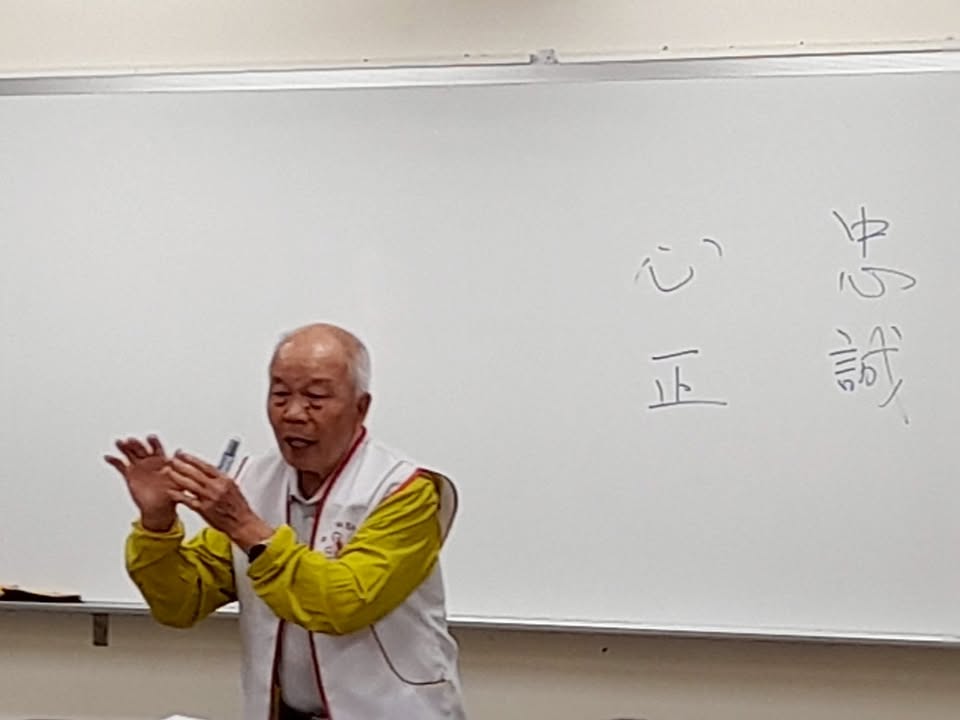 忠誠
心正